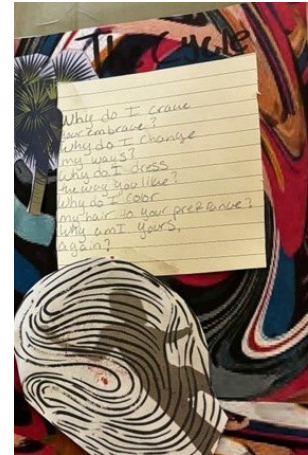 The Cycle
Why do I crave
your embrace?
Why do I change
my ways?
Why do I dress
the way you like?
Why do I color
my hair to your prefrance?
Why am I yours,
again?